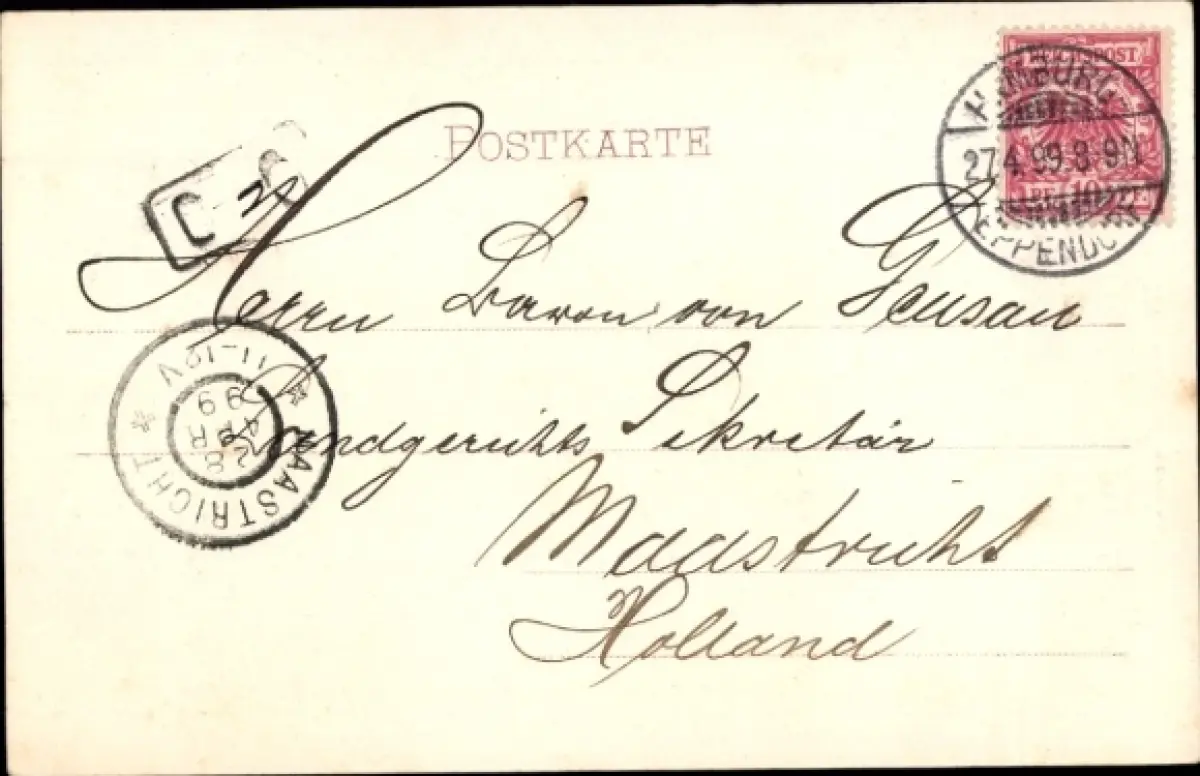 POSTKARTE
REICHSPOST
10
HAMBURG
27.4.99.8-9N.
EPPENDORF
C
Herrn Baron von Geusau
Landgerichts Sekretär
Maastricht
Holland
MAASTRICHT
28 APR
99
11-12V